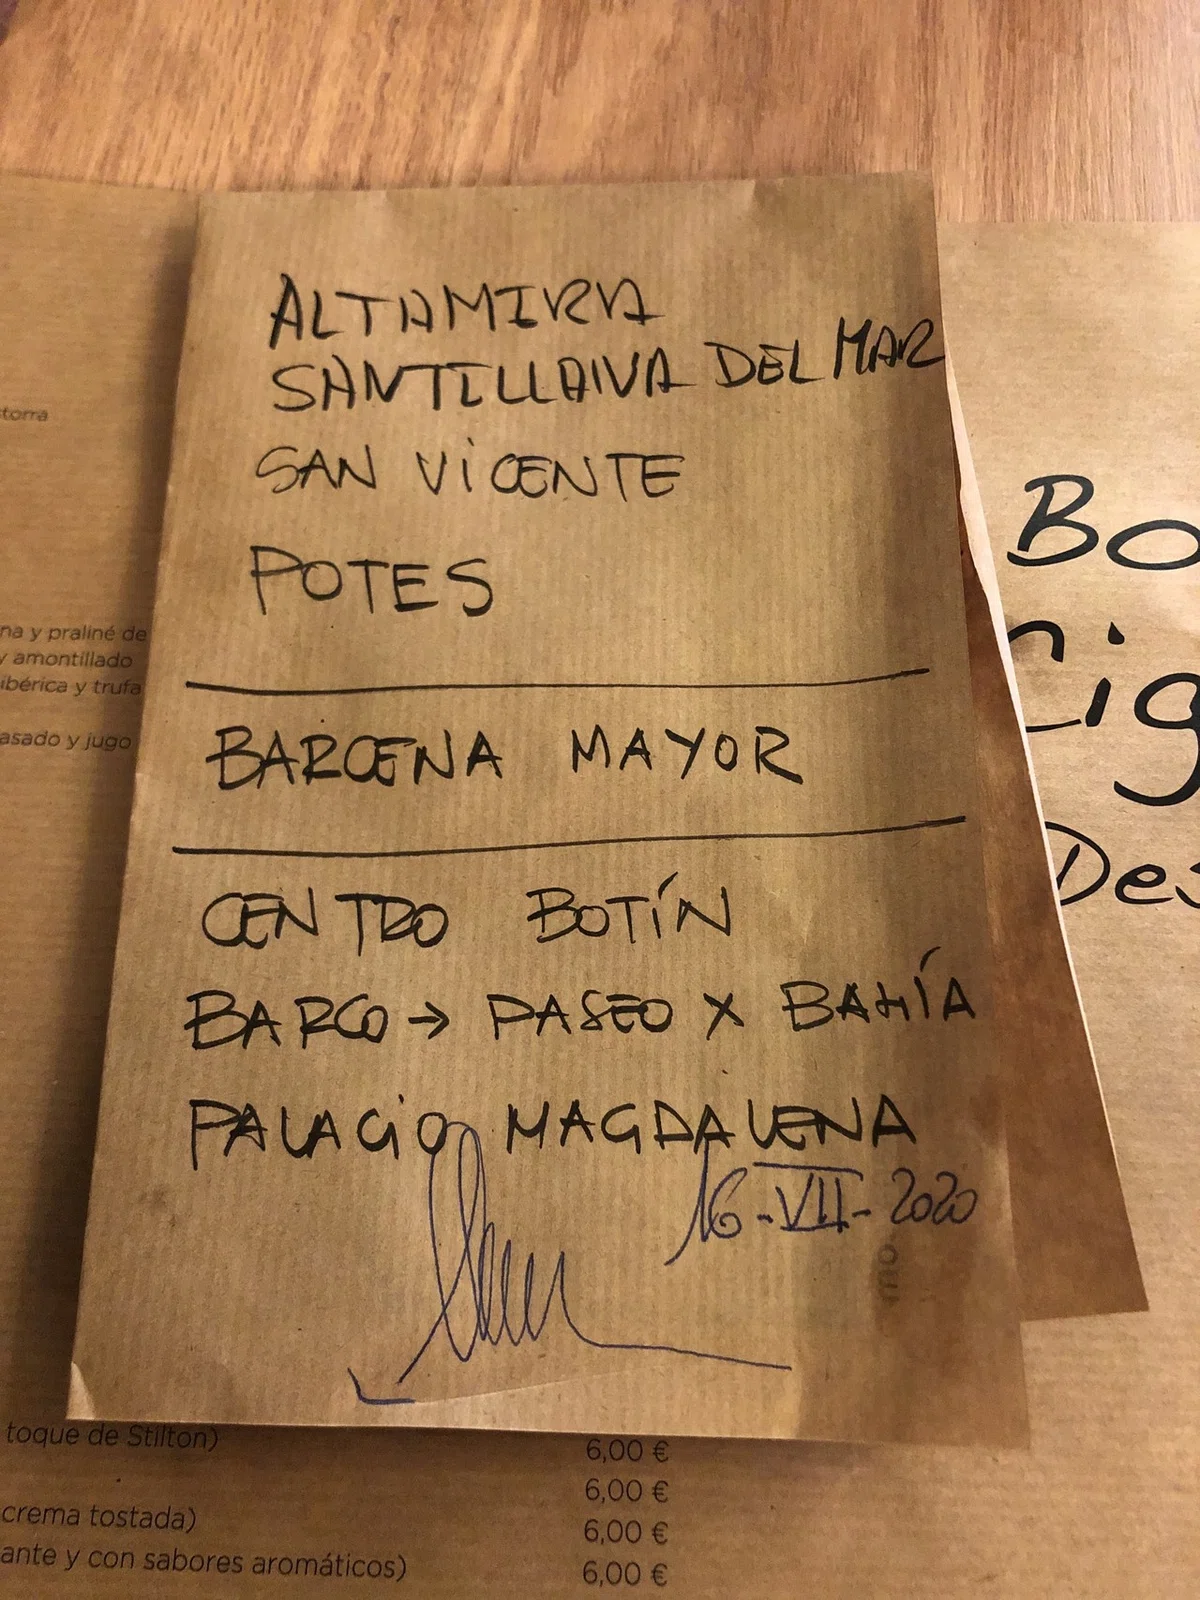 ALTAMIRA
SANTILLANA DEL MAR
SAN VICENTE
POTES
BARCENA MAYOR
CENTRO BOTÍN
BARCO → PASEO X BAHÍA
PALACIO MAGDALENA
16-VII-2020
storra
na y praliné de
y amontillado
ibérica y trufa
asado y jugo
toque de Stilton)
crema tostada)
ante y con sabores aromáticos)
6,00 €
6,00 €
6,00 €
6,00 €
Bo
ig
Des